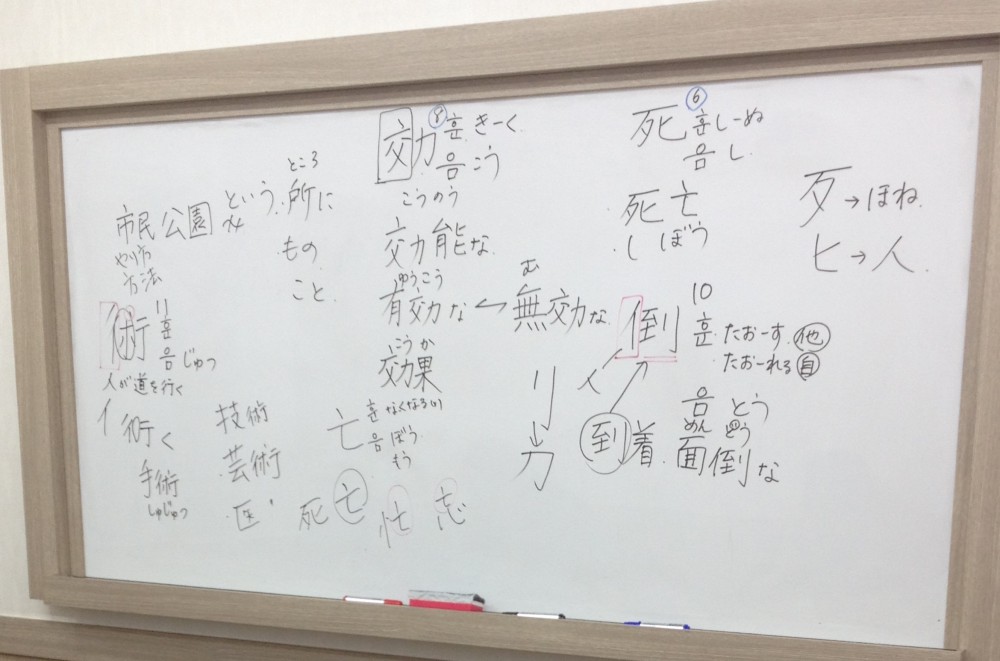 ところ
市民公園 という 所に
もの
こと
やり方
方法
術 11
훈
음 じゅつ
人が道を行く
イ 術 く
手術
しゅじゅつ
技術
芸術
医
効 8 훈 きーく
음 こう
こうのう
効能な
ゆうこう む
有効な ← 無効な
こうか
効果
亡 훈 なくなる(い)
음 ぼう
もう
死亡 忙 忘
死 6 훈 しーぬ
음 し
死亡
し ぼう
歹→ほね
ヒ→人
倒 10
훈 たおーす 他
たおーれる 自
음 とう
人
刂→刀
到着
めん どう
面倒な